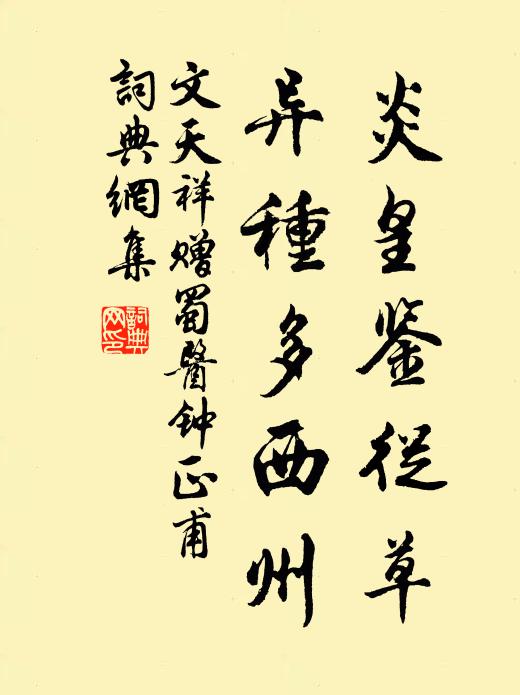 炎皇鉴從草
异種多西州
文天祥赠蜀醫钟正甫
詞典網集
詞典网印